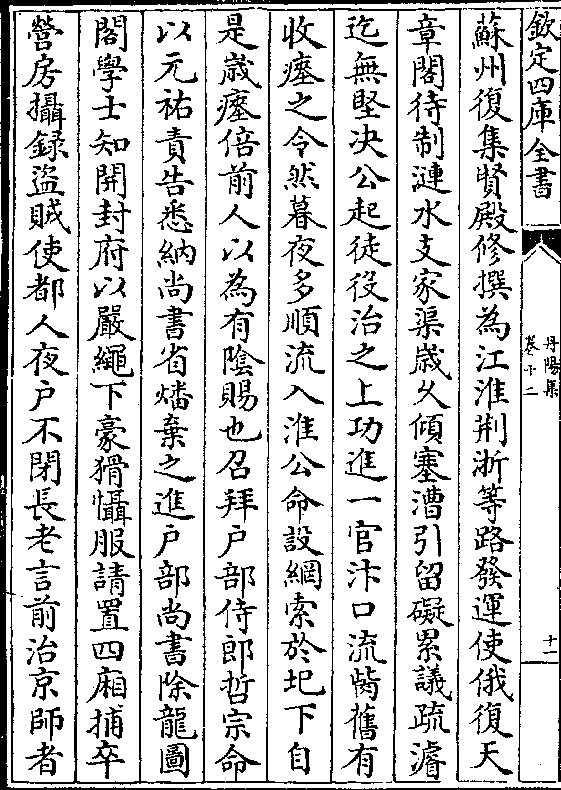 欽定四庫全書
丹陽集
卷十二
十一
蘇州復集賢殿修撰為江淮荆浙等路發運使俄復天
章閣待制漣水支家渠歲乆傾塞漕引留礙累議疏濬
迄無堅决公起徒役治之上功進一官汴口流胔舊有
收瘞之令然暮夜多順流入淮公命設網索於圯下自
是歲瘞倍前人以為有陰賜也召拜户部侍郎哲宗命
以元祐責告悉納尚書省燔棄之進户部尚書除龍圖
閣學士知開封府以嚴繩下豪猾懾服請置四廂捕卒
營房攝録盜賊使都人夜户不閉長老言前治京師者